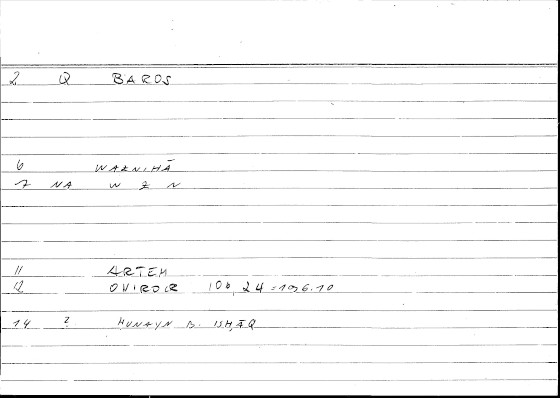 2 Q BAROS
6 WAZNIHĀ
7 NA W Z N
11 ARTEM
12 OVIROCR 106,24=196.10
14 ? HUNAYN B. ISḤĀQ